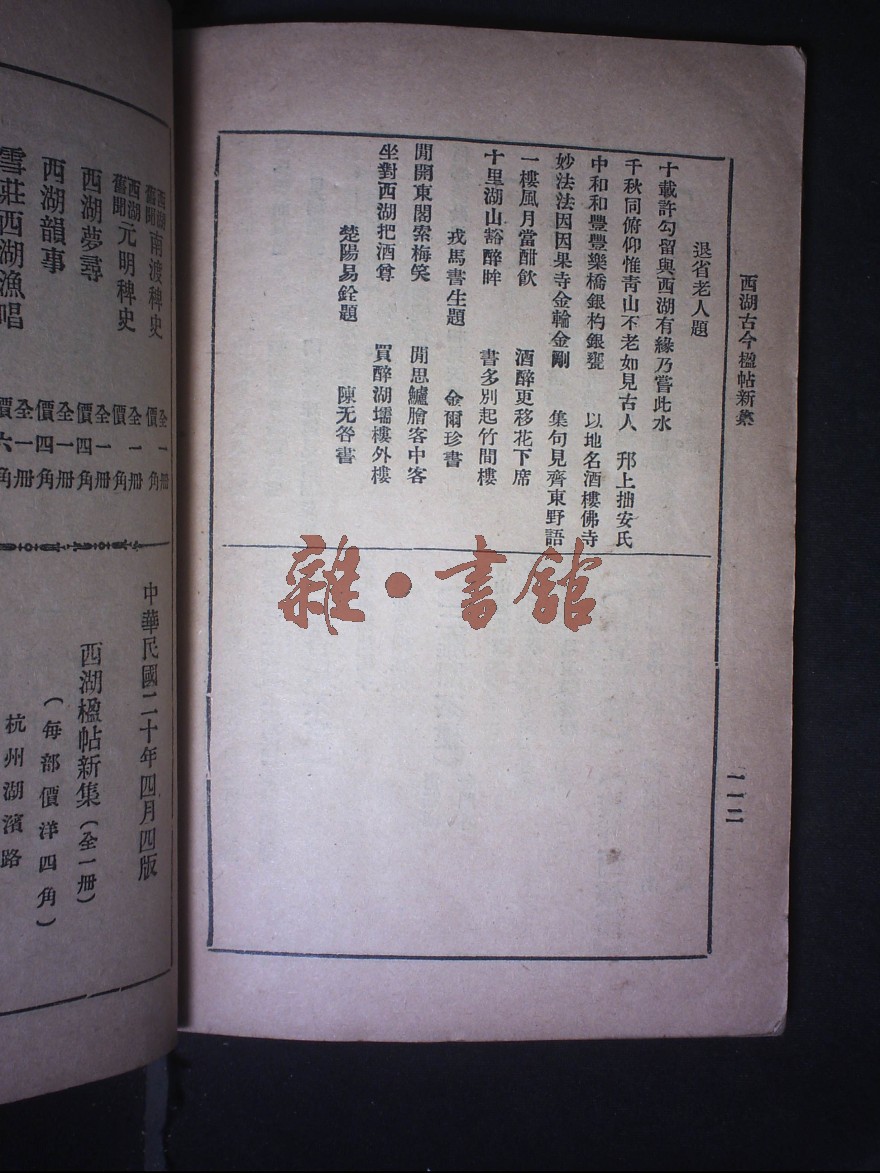 西湖古今楹帖新集
一一二
退省老人題
十載許勾留與西湖有緣乃嘗此水
千秋同俯仰惟靑山不老如見古人 邗上拙安氏
中和和豐豐樂橋銀杓銀甕 以地名酒樓佛寺
妙法法因因果寺金輪金剛 集句見齊東野語
一樓風月當酣飲 酒醉更移花下席
十里湖山豁醉眸 書多別起竹間樓
戎馬書生題 金爾珍書
閒開東閣索梅笑 閒思鱸膾客中客
坐對西湖把酒尊 買醉湖壖樓外樓
楚陽易銓題 陳无咎書
雜·書館
西湖舊聞南渡稗史 全一册價一角
西湖舊聞元明稗史 全一册價一角
西湖夢尋 全一册價四角
西湖韻事 全一册價四角
雪莊西湖漁唱 全一册價六角
中華民國二十年四月四版
西湖楹帖新集(全一册)
(每部價洋四角)
杭州湖濱路